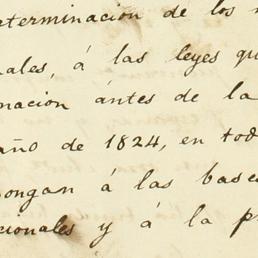 eterminacion de los
nales, á las leyes qu
nacion ántes de la
año de 1824, en tod
pongan á las base
cionales y á la p